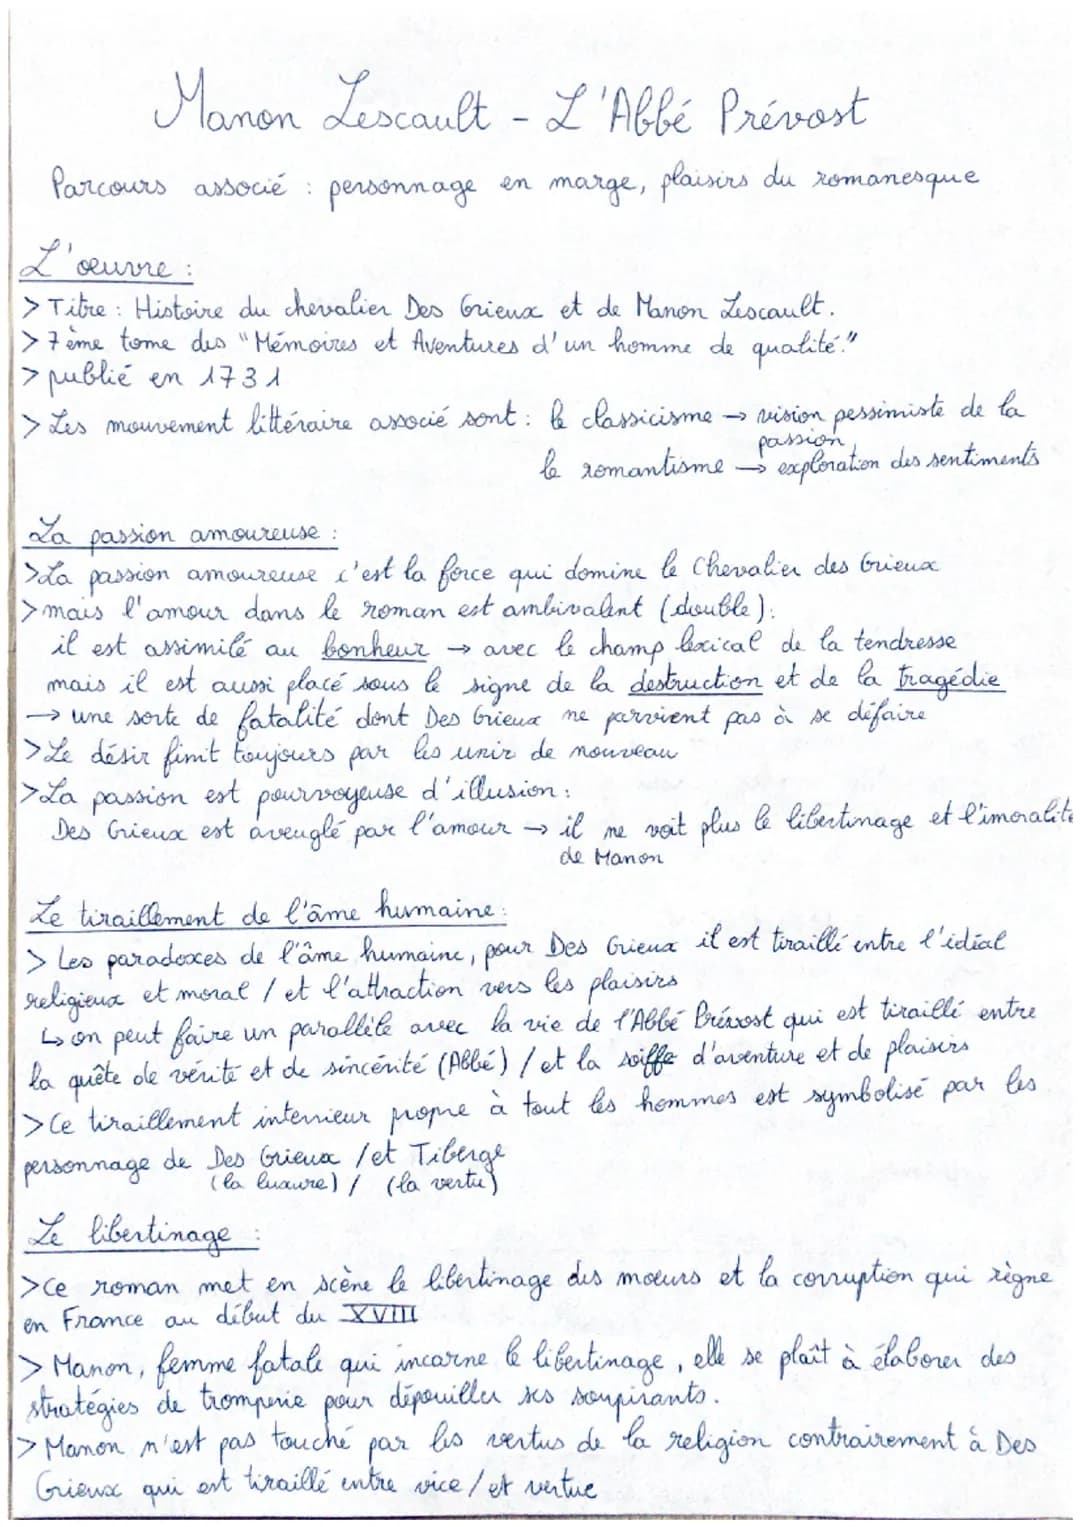 Manon Lescault - L'Abbé Prévost
Parcours associé : personnage en marge, plaisirs du romanesque
L'œuvre :
> Titre : Histoire du chevalier Des Grieux et de Manon Lescault.
> 7ème tome des "Mémoires et Aventures d'un homme de qualité."
> publié en 1731
> Les mouvement littéraire associé sont : le classicisme → vision pessimiste de la
passion
le romantisme → exploration des sentiments
La passion amoureuse :
> La passion amoureuse c'est la force qui domine le Chevalier des Grieux
> mais l'amour dans le roman est ambivalent (double) :
il est assimilé au bonheur → avec le champ lexical de la tendresse
mais il est aussi placé sous le signe de la destruction et de la tragédie
→ une sorte de fatalité dont Des Grieux ne parvient pas à se défaire
> Le désir finit toujours par les unir de nouveau
> La passion est pourvoyeuse d'illusion :
Des Grieux est aveuglé par l'amour → il ne voit plus le libertinage et l'imoralité
de Manon
Le tiraillement de l'âme humaine :
> Les paradoxes de l'âme humaine, pour Des Grieux il est tiraillé entre l'idéal
religieux et moral / et l'attraction vers les plaisirs
↳ on peut faire un parallèle avec la vie de l'Abbé Prévost qui est tiraillé entre
la quête de vérité et de sincérité (Abbé) / et la soiffe d'aventure et de plaisirs
> Ce tiraillement interrieur propre à tout les hommes est symbolisé par les
personnage de Des Grieux / et Tiberge
(la luxure) / (la vertu)
Le libertinage :
> Ce roman met en scène le libertinage des moeurs et la corruption qui règne
en France au début du XVIII
> Manon, femme fatale qui incarne le libertinage, elle se plaît à élaborer des
stratégies de tromperie pour dépouiller ses soupirants.
> Manon n'est pas touché par les vertus de la religion contrairement à Des
Grieux qui est tiraillé entre vice / et vertue